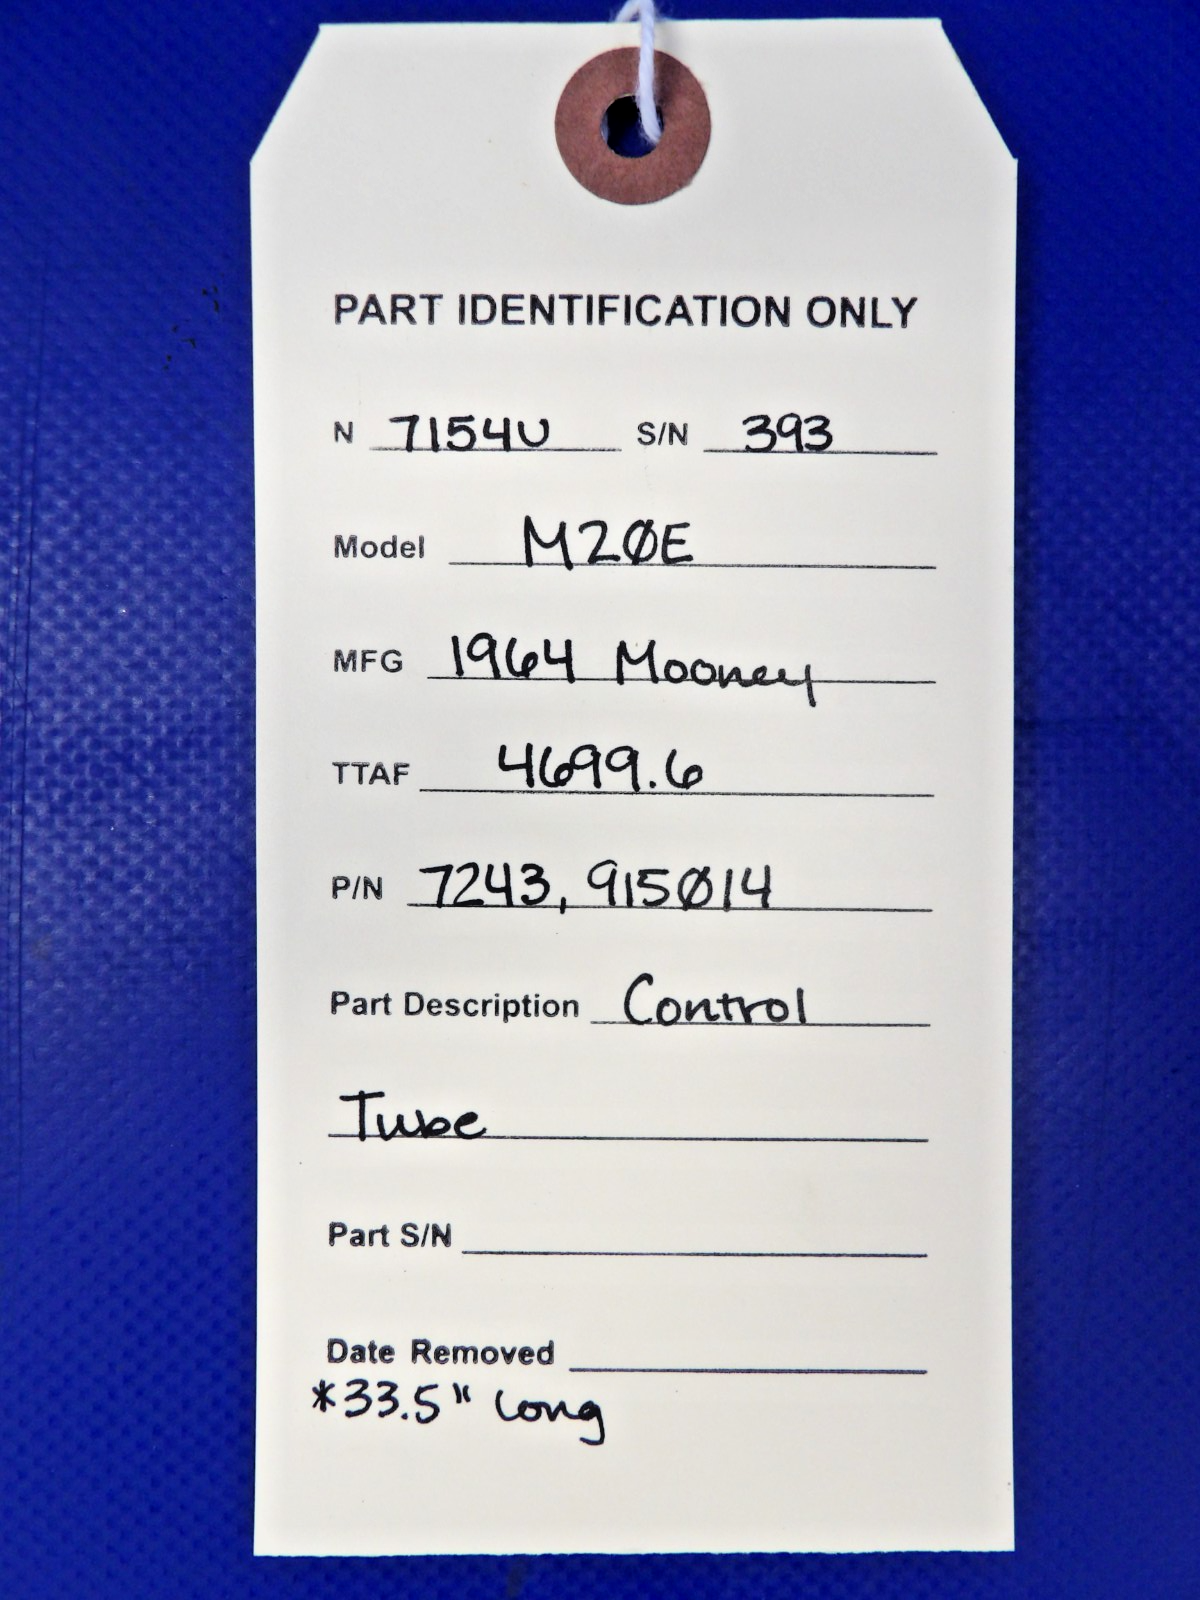 PART IDENTIFICATION ONLY
N 7154U S/N 393
Model M20E
MFG 1964 Mooney
TTAF 4699.6
P/N 7243, 915014
Part Description Control
Tube
Part S/N
Date Removed
*33.5" long